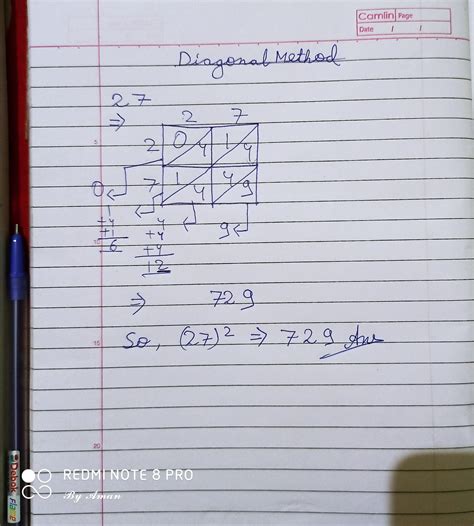 Camlin Page
Date / /
Diagonal Method
27
⇒
2 7
2 0 4 1 4
7 1 4 4 9
0
1
+4 4
+1 +4 9
6 +4
12
⇒ 729
So, (27)² ⇒ 729 Ans
5
10
15
20
REDMI NOTE 8 PRO
By Aman